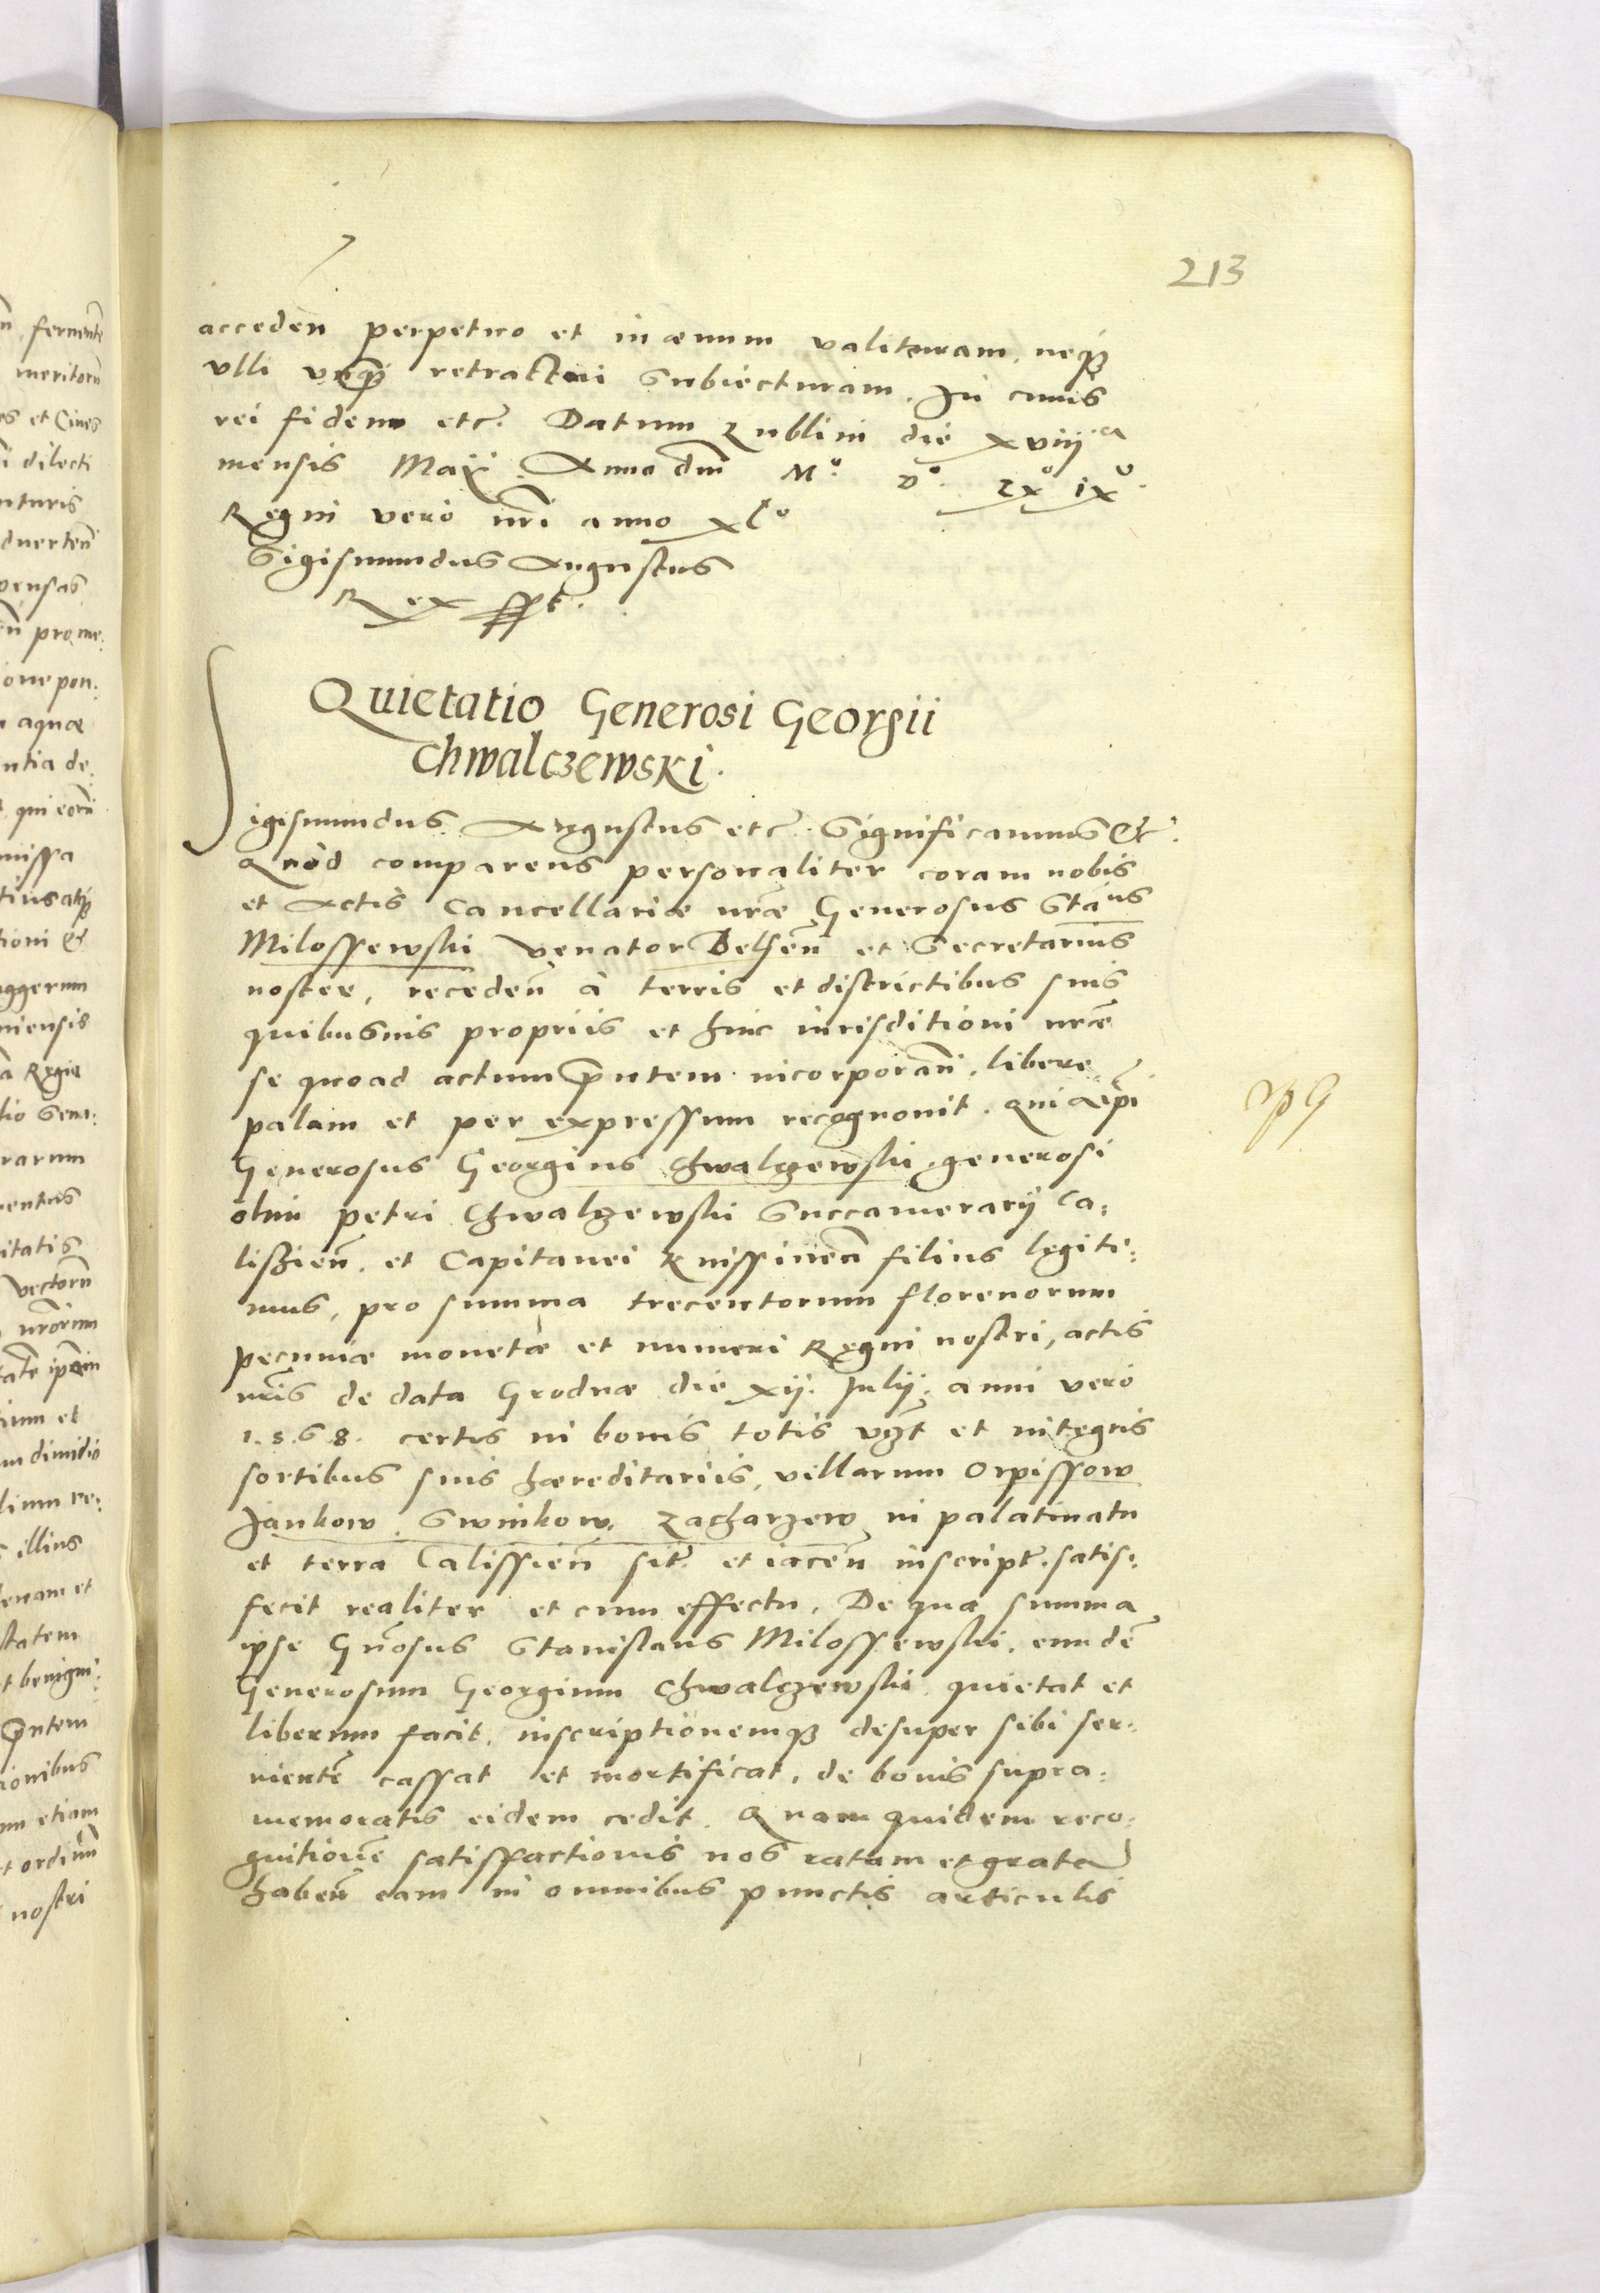 213
acceden̄ perpetuo et in aeuum valituram, neqȝ
vlli vnqȝ retractoi Subiecturam. In cuius
rei fidem etc. Datum Lublini die xviij.a
mensis Maij. Anno dni Mo. Do. Lxo ixo.
Regni vero nri anno xlo
Sigismundus Augustus
Rex sspt.
Quietatio Generosi Georgii
Chwalczewski.
Sigismundus Augustus etc. Significamus etc.
Quod comparens personaliter coram nobis
et Actis Cancellariae nrae Generosus Staus
Milossewski Venator Belsen̄ et Secretarius
noster, receden̄ à terris et districtibus suis
quibusuis propriis et huic iurisditioni nrae
se quoad actum pntem incorporan̄. libere
palam et per expressum recognouit. quia ipi
Generosus Georgius Chwalczewski, generosi
olim petri Chwalczewski Succamerarij Ca:
lissien̄. et Capitanei Knissinen̄ filius legiti:
mus, pro summa trecentorum florenorum
pecuniae monetae et numeri Regni nostri, actis
nris de data Grodnae die xij. Julij. anni vero
1.5.6.8. certis in bonis totis vgt et integris
sortibus suis haereditariis, villarum Orpissow
Jankow. Swinkow. Zacharzew in palatinatu
et terra Calissien̄ sit. et iacen̄ inscript. satis:
fecit realiter et cum effectu. De qua summa
ipse Gnosus Stanislaus Milossewski. eundē
Generosum Georgium Chwalczewski quietat et
liberum facit, inscriptionemqȝ desuper sibi ser:
uientē cassat et mortificat, de bonis supra:
memoratis eidem cedit. Quam quidem reco:
gnitionē satisfactionis nos ratam et gratā
haben̄ eam in omnibus punctis articulis